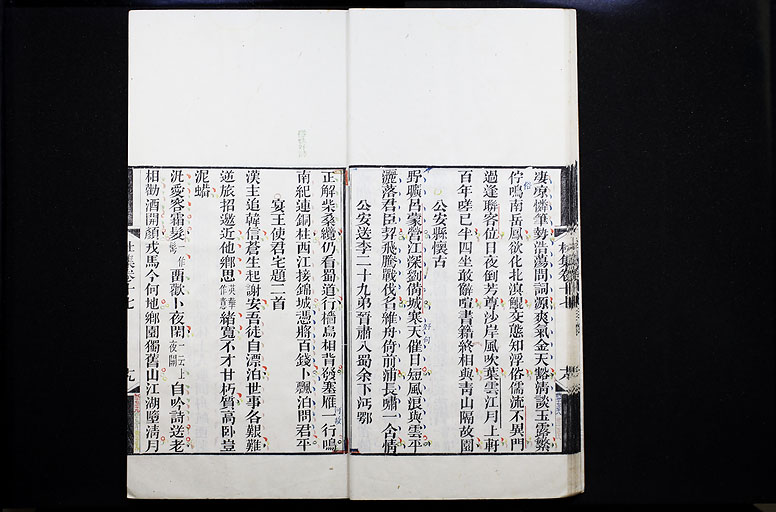 凄涼憐筆勢浩蕩問詞源爽氣金天豁清談玉露繁
佇鳴南岳鳳欲化北溟鯤交態知浮俗儒流不異門
過逢聯客位日夜倒芳尊沙岸風吹葉雲江月上軒
百年嗟已半四坐敢辭喧書籍終相與青山隔故園
公安縣懷古
野曠呂蒙營江深劉備城寒天催日短風浪與雲平
灑落君臣契飛騰戰伐名維舟倚前浦長嘯一含情
公安送李二十九弟晉肅入蜀余下沔鄂
正解柴桑纜仍看蜀道行檣烏相背發塞雁一行鳴
南紀連銅柱西江接錦城憑將百錢卜飄泊問君平
宴王使君宅題二首
漢主追韓信蒼生起謝安吾徒自漂泊世事各艱難
逆旅招邀近他鄉思緒寬不才甘朽質高卧豈
泥蟠
汎愛容霜鬢留歡卜夜閑自吟詩送老
相勸酒開顏戎馬今何地鄉園獨舊山江湖墮清月
杜集卷十七
十九